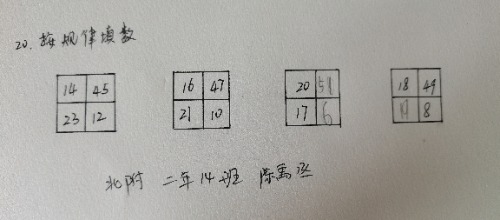 20. 按规律填数
14 45 16 47 20 51 18 49
23 12 21 10 17 6 19 8
北附 二年14班